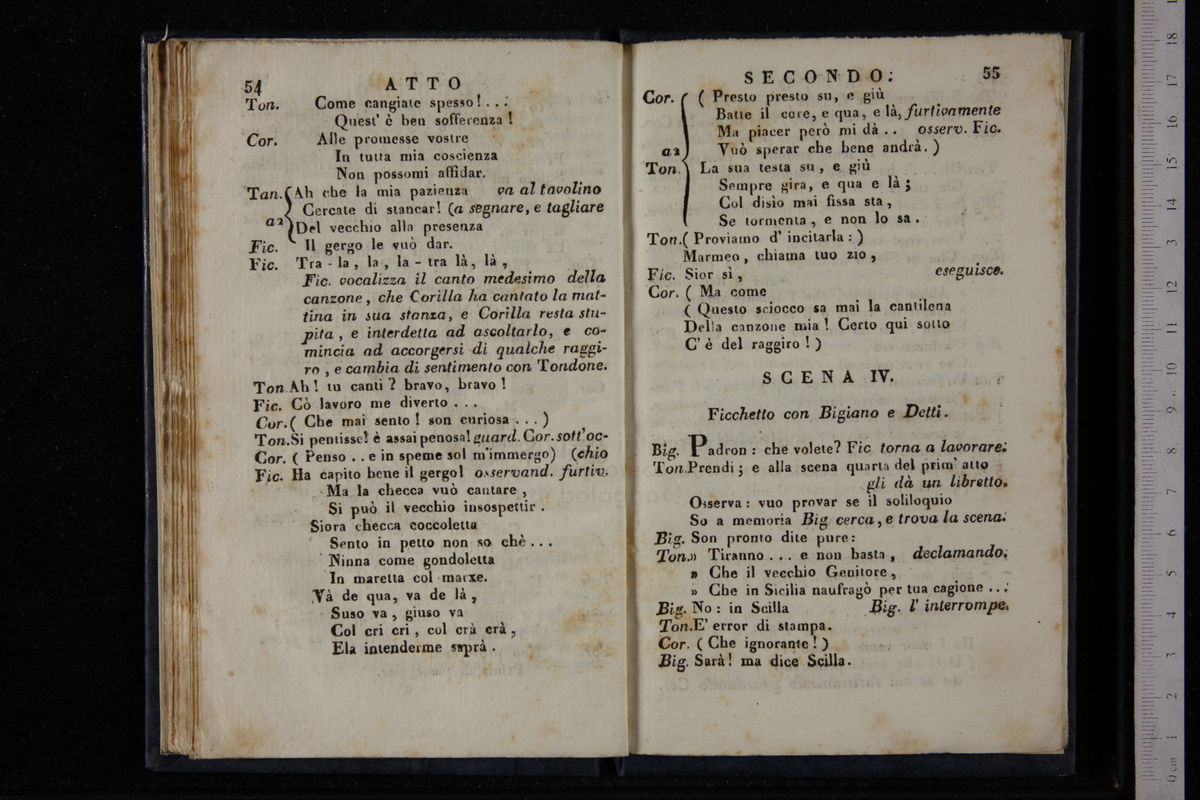 54 ATTO
Ton. Come cangiate spesso! . . .
Quest' è ben sofferenza !
Cor. Alle promesse vostre
In tutta mia coscienza
Non possomi affidar.
Tan. Ah che la mia pazienza va al tavolino
Cercate di stancar! (a segnare, e tagliare
a2 Del vecchio alla presenza
Fic. Il gergo le vuò dar.
Fic. Tra - la , la , la - tra là , là ,
Fic. vocalizza il canto medesimo della
canzone , che Corilla ha cantato la mat-
tina in sua stanza, e Corilla resta stu-
pita , e interdetta ad ascoltarlo, e co-
mincia ad accorgersi di qualche raggi-
ro , e cambia di sentimento con Tondone.
Ton. Ah ! tu canti ? bravo, bravo !
Fic. Cò lavoro me diverto . . .
Cor. ( Che mai sento ! son curiosa . . . )
Ton. Si pentisse! è assai penosa! guard. Cor. sott'oc-
Cor. ( Penso . . e in speme sol m'immergo) (chio
Fic. Ha capito bene il gergo! osservand. furtiv.
Ma la checca vuò cantare ,
Si può il vecchio insospettir .
Siora checca coccoletta
Sento in petto non so chè . . .
Ninna come gondoletta
In maretta col marxe.
Và de qua, va de là ,
Suso va , giuso va
Col cri cri , col crà crà ,
Ela intenderme saprà .
SECONDO. 55
Cor. ( Presto presto su, e giù
Batte il core, e qua, e là, furtivamente
Ma piacer però mi dà . . osserv. Fic.
a2 Vuò sperar che bene andrà. )
Ton. La sua testa su , e giù
Sempre gira, e qua e là ;
Col disìo mai fissa sta ,
Se tormenta , e non lo sa .
Ton. ( Proviamo d' incitarla : )
Marmeo , chiama tuo zio ,
Fic. Sior sì , eseguisce.
Cor. ( Ma come
( Questo sciocco sa mai la cantilena
Della canzone mia ! Certo qui sotto
C' è del raggiro ! )
SCENA IV.
Ficchetto con Bigiano e Detti.
Big. Padron : che volete? Fic torna a lavorare.
Ton. Prendi ; e alla scena quarta del prim' atto
gli dà un libretto.
Osserva : vuo provar se il soliloquio
So a memoria Big cerca, e trova la scena.
Big. Son pronto dite pure:
Ton. » Tiranno . . . e non basta , declamando.
» Che il vecchio Genitore ,
» Che in Sicilia naufragò per tua cagione . . .
Big. No : in Scilla Big. l' interrompe.
Ton. E' error di stampa.
Cor. ( Che ignorante ! )
Big. Sarà ! ma dice Scilla.